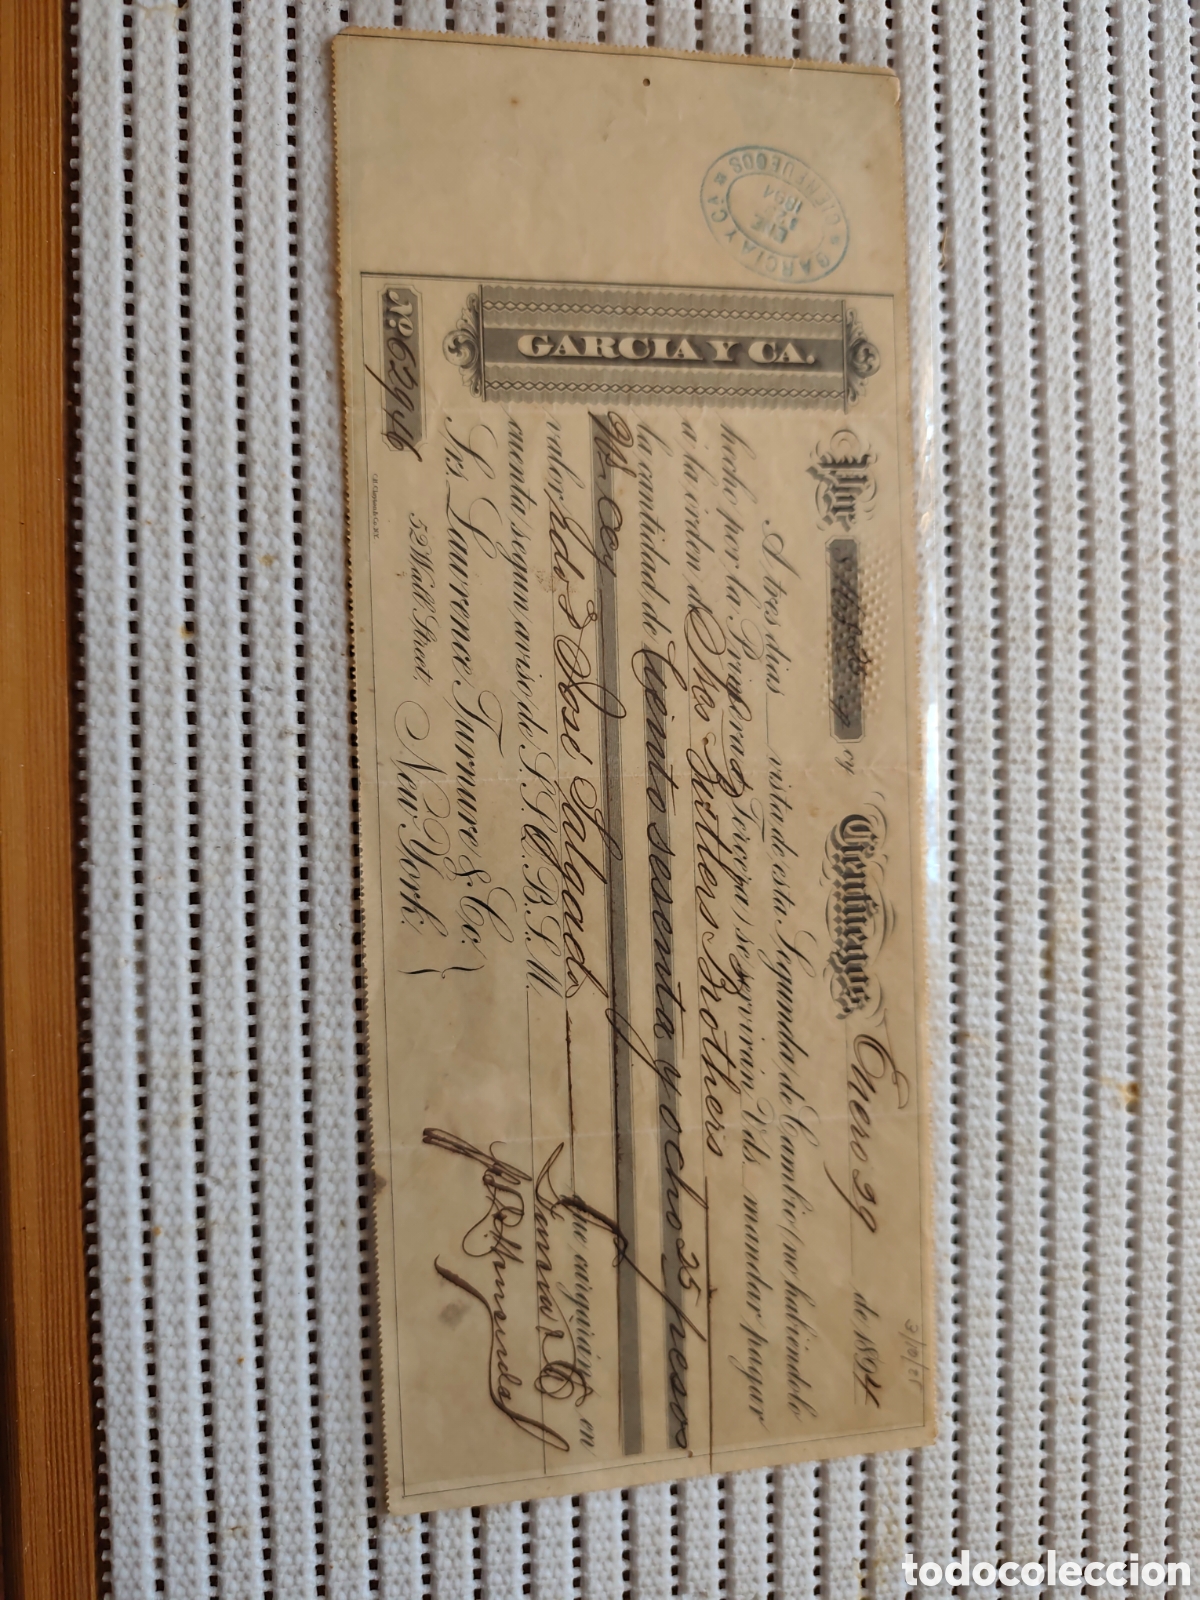 GARCIA Y CA. CIENFUEGOS
ENE
1894
GARCIA Y CA.
Nº 6294
Por
oy
Cienfuegos Enero 29 de 1894
A tres dias vista de esta Segunda de Cambio (no habiéndolo
hecho por la Primera ó Tercera) se servirán Vds. mandar pagar
á la orden de Butlers Brothers
la cantidad de Ciento sesenta y ocho 25/ pesos
valor José Salgado que cargarán en
cuenta segun aviso de S.S.Q.B.S.M.
Srs. Lawrence Turnure & Co.
52 Wall Street,
New York.
todocoleccion